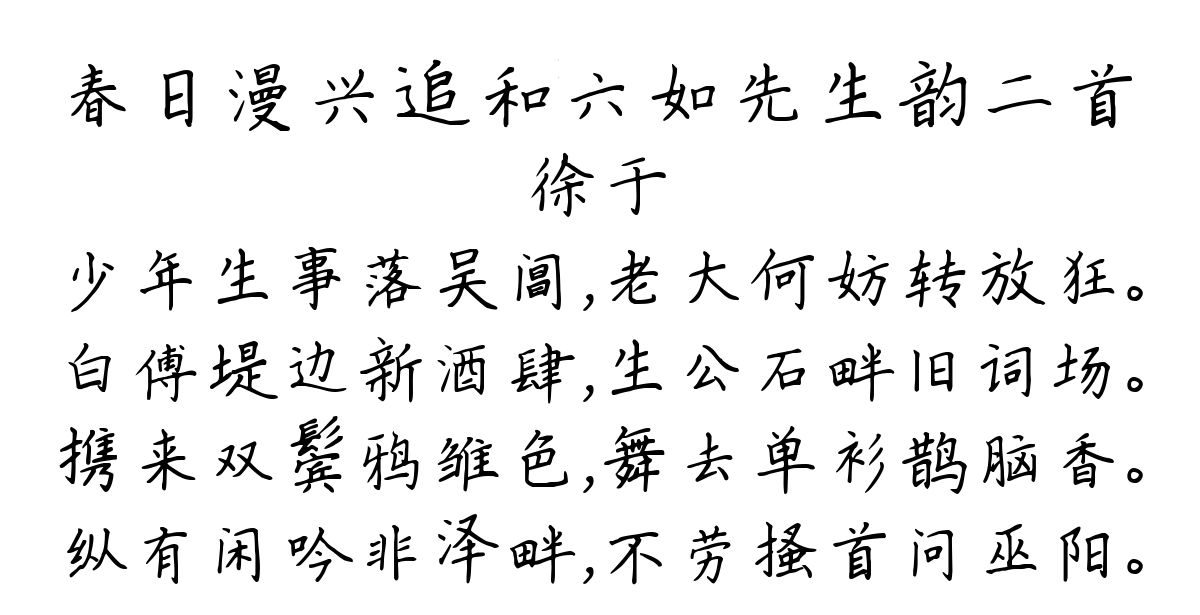 春日漫兴追和六如先生韵二首
徐于
少年生事落吴阊,老大何妨转放狂。
白傅堤边新酒肆,生公石畔旧词场。
携来双鬓鸦雏色,舞去单衫鹊脑香。
纵有闲吟非泽畔,不劳搔首问巫阳。